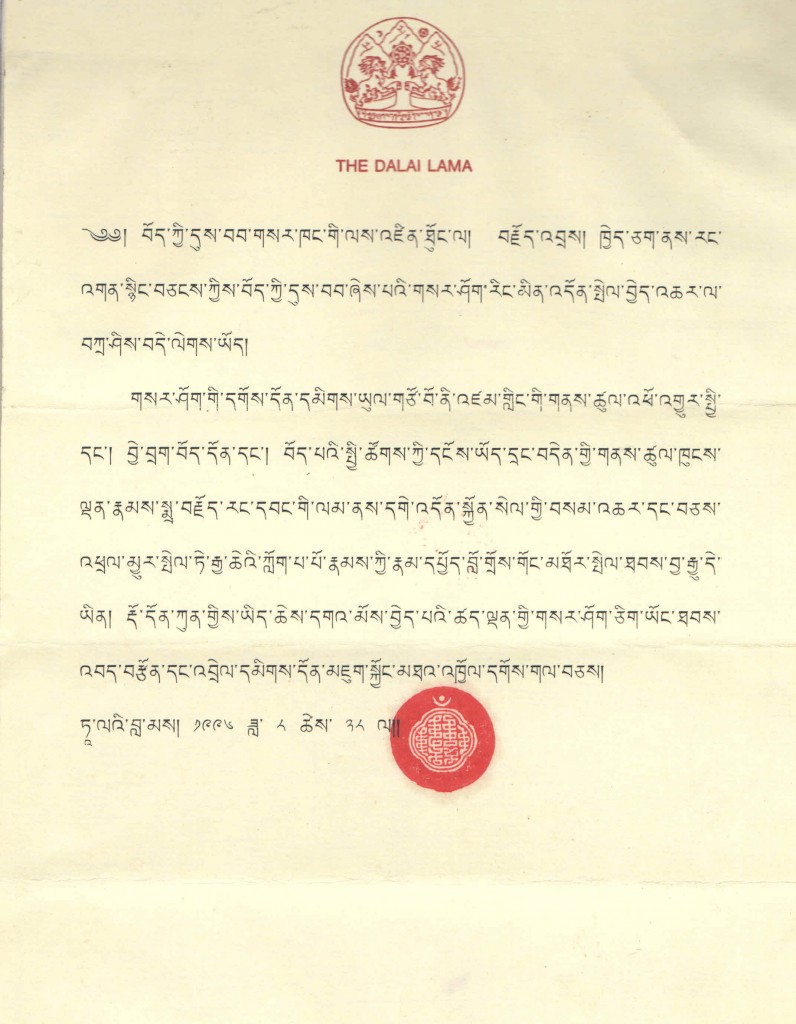 THE DALAI LAMA
༄༅། བོད་ཀྱི་དུས་བབ་གསར་ཁང་གི་ལས་འཛིན་ཐོུང་ལ། བརྗོད་འབྲས། ཁྱེད་ཅག་ནས་རང་
འགན་སྙིང་བཅངས་ཀྱིས་བོད་ཀྱི་དུས་བབ་ཞེས་པའི་གསར་ཤོག་རིང་མིན་འདོན་སྤེལ་བྱེད་འཆར་ལ་
བཀྲ་ཤིས་བདེ་ལེགས་ཡོད།
གསར་ཤོག་གི་དགོས་དོན་དམིགས་ཡུལ་གཙོ་བོ་ནི་འཛམ་གླིང་གི་གནས་ཚུལ་འཕོ་འགྱུར་སྤྱི་
དང་། བྱེ་བྲག་བོད་དོན་དང་། བོད་པའི་སྤྱི་ཚོགས་ཀྱི་དངོས་ཡོད་དྲང་བདེན་གྱི་གནས་ཚུལ་ཁུངས་
ལྡན་རྣམས་སྨྲ་བརྗོད་རང་དབང་གི་ལམ་ནས་དགེ་འདོན་སྐྱོན་སེལ་གྱི་བསམ་འཆར་དང་བཅས་
འཕྲལ་མྱུར་སྤེལ་ཏེ་རྒྱ་ཆེའི་ཀློག་པ་པོ་རྣམས་ཀྱི་རྣམ་དཔྱོད་བློ་གྲོས་གོང་མཐོར་སྤེལ་ཐབས་བྱ་རྒྱུ་དེ་
ཡིན། དོ་དོན་ཀུན་གྱིས་ཡིད་ཆེས་དགའ་མོས་བྱེད་པའི་ཚད་ལྡན་གྱི་གསར་ཤོག་ཅིག་ཡོང་ཐབས་
འབད་བརྩོན་དང་འབྲེལ་དམིགས་དོན་མཇུག་སྐྱོང་མཐའ་འཁྱོལ་དགོས་གལ་བཅས།
ཏཱ་ལའི་བླ་མས། ༡༩༩༦ ཟླ་ ༨ ཚེས་ ༢༨ ལ།།